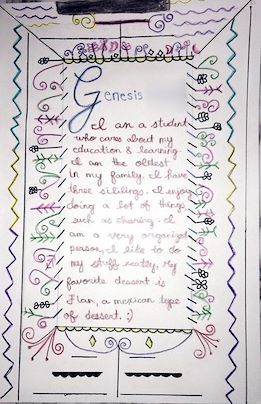 Genesis
I am a student
who cares about my
education & learning.
I am the oldest
in my family. I have
three siblings. I enjoy
doing a lot of things
such as sharing. I
am a very organized
person, I like to do
my stuff neatly. My
favorite dessert is
Flan, a mexican type
of dessert. :)